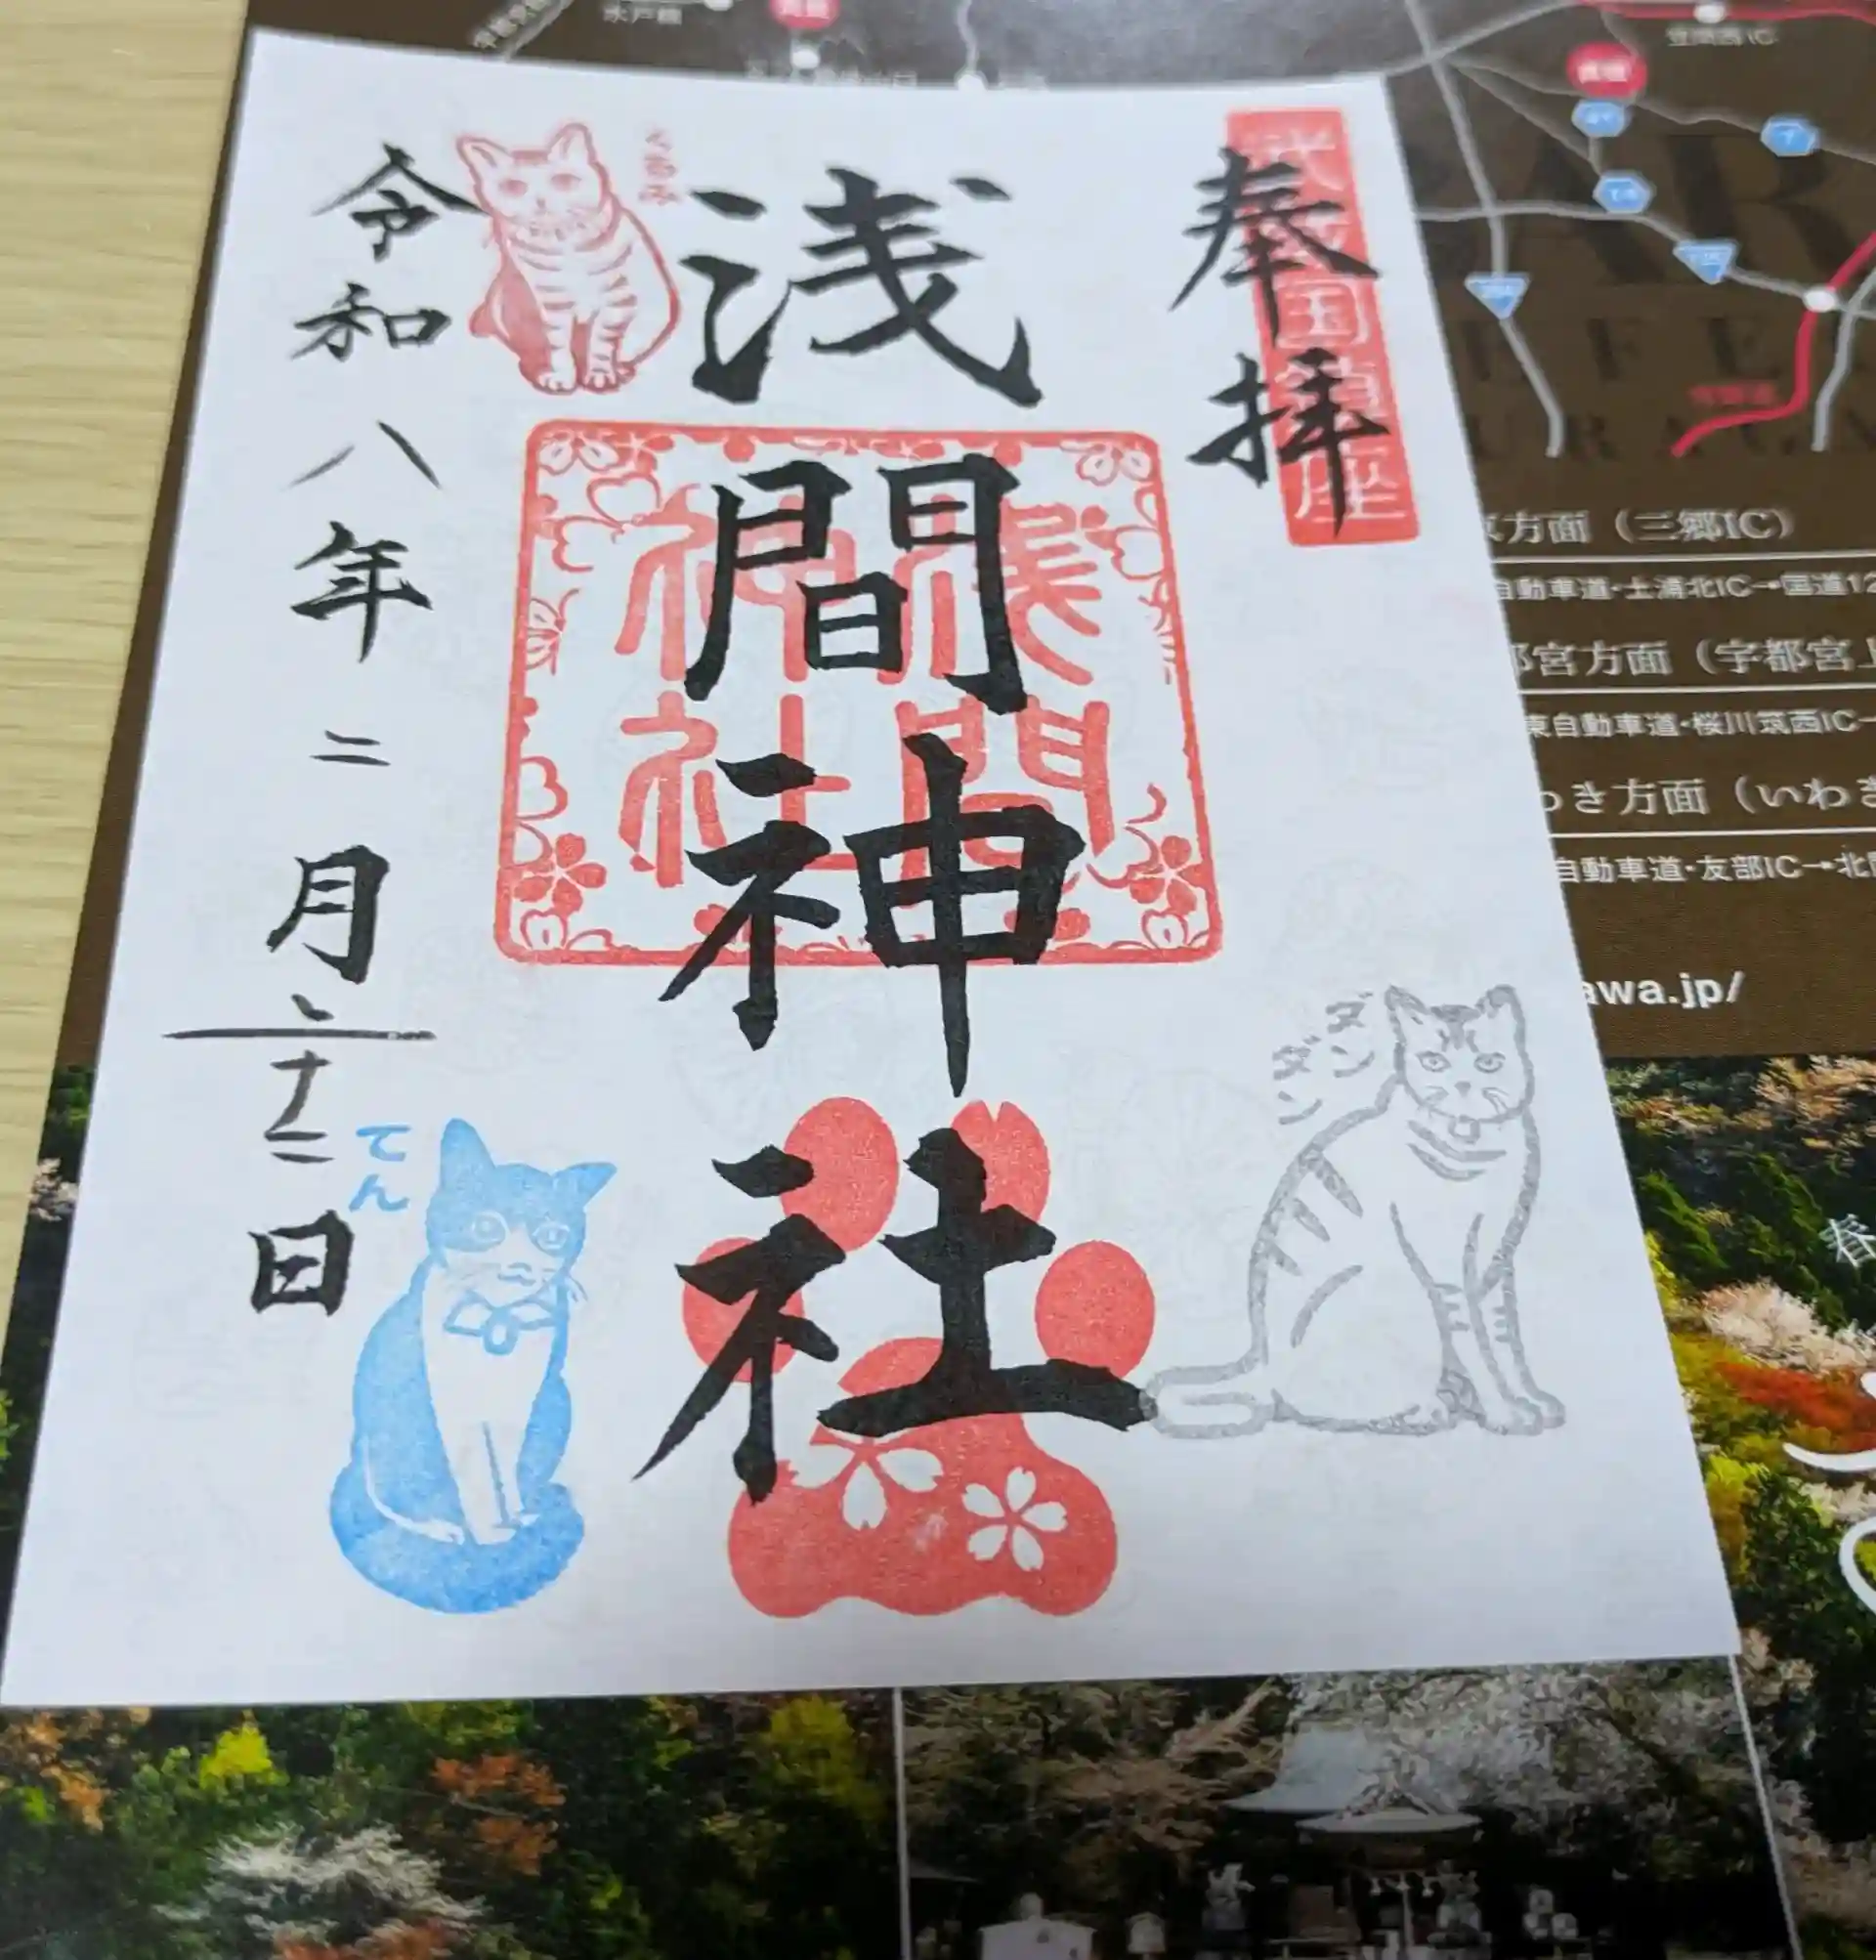 奉拝
武蔵国鎮座
浅間神社
淺間
神社
令和八年二月二十二日
くるみ
てん
ダンダン
水戸線
方面（三郷IC）
自動車道・土浦北IC→国道12
宮方面（宇都宮上
東自動車道・桜川筑西IC
き方面（いわき
自動車道・友部IC→北
awa.jp/
春